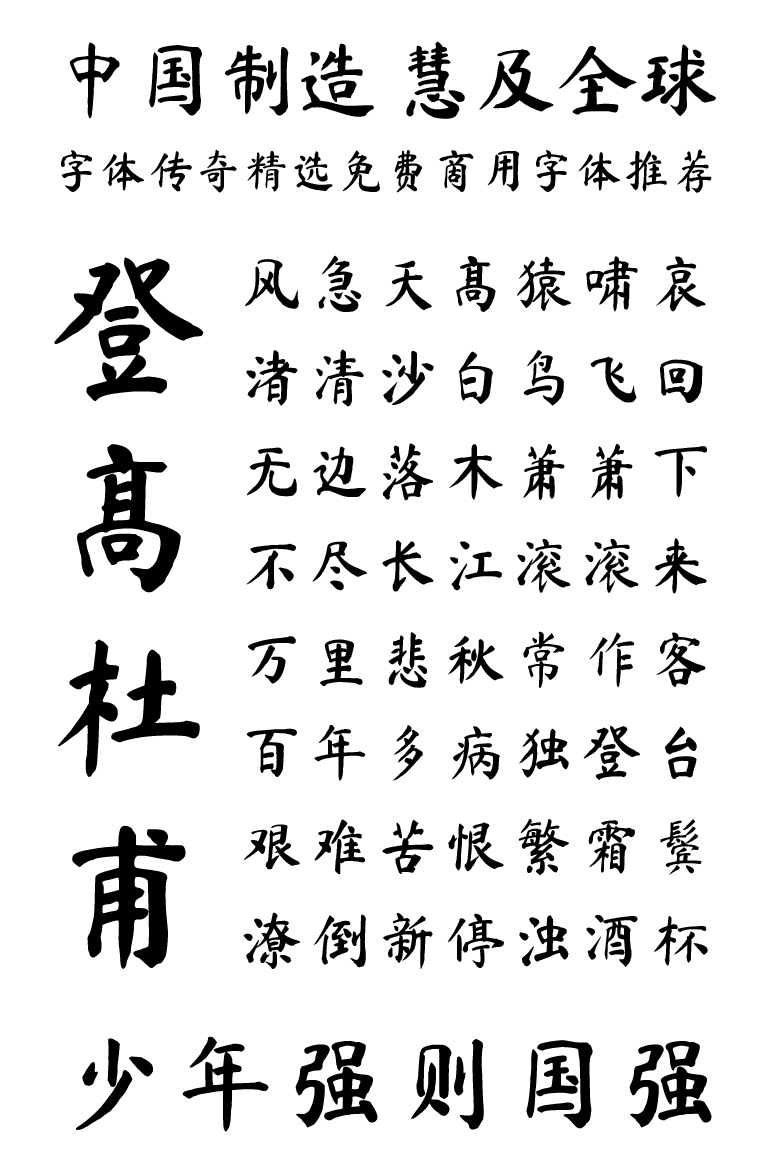 中国制造 慧及全球
字体传奇精选免费商用字体推荐
登高
杜甫
风急天高猿啸哀
渚清沙白鸟飞回
无边落木萧萧下
不尽长江滚滚来
万里悲秋常作客
百年多病独登台
艰难苦恨繁霜鬓
潦倒新停浊酒杯
少年强则国强